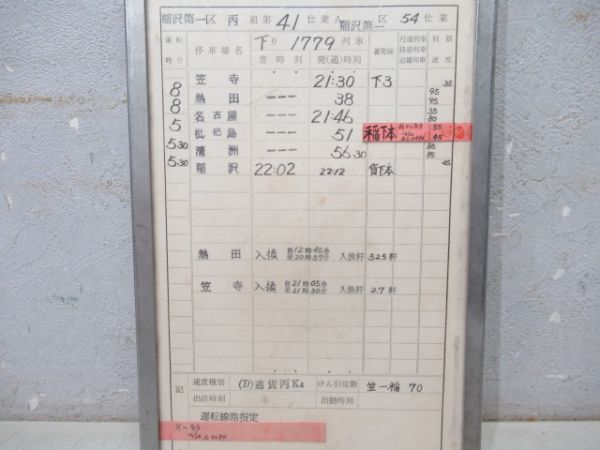 稲沢第一区 丙 組第 41 仕業 稲沢第一 区 54 仕業
運転時分 停車場名 下り 1779 列車 着発線 行違列車 待避列車 追越列車 制限速度
着時刻 発(通)時刻
笠寺 21:30 下3 35
8 熱田 --- 38 95 95
8 名古屋 --- 21:46 35 80
5 枇杷島 --- 51 稲下本 55 45
5.30 清洲 --- 56.30 85 95
5.30 稲沢 22:02 22:12 貨下本 45
熱田 入換 自12時45分 至20時57分 入換軒 525軒
笠寺 入換 自21時05分 至21時30分 入換軒 2.7軒
記 速度種別 (D)通貨丙K4 けん引定数 笠一稲 70
出区時刻 出勤時刻
運転線路指定